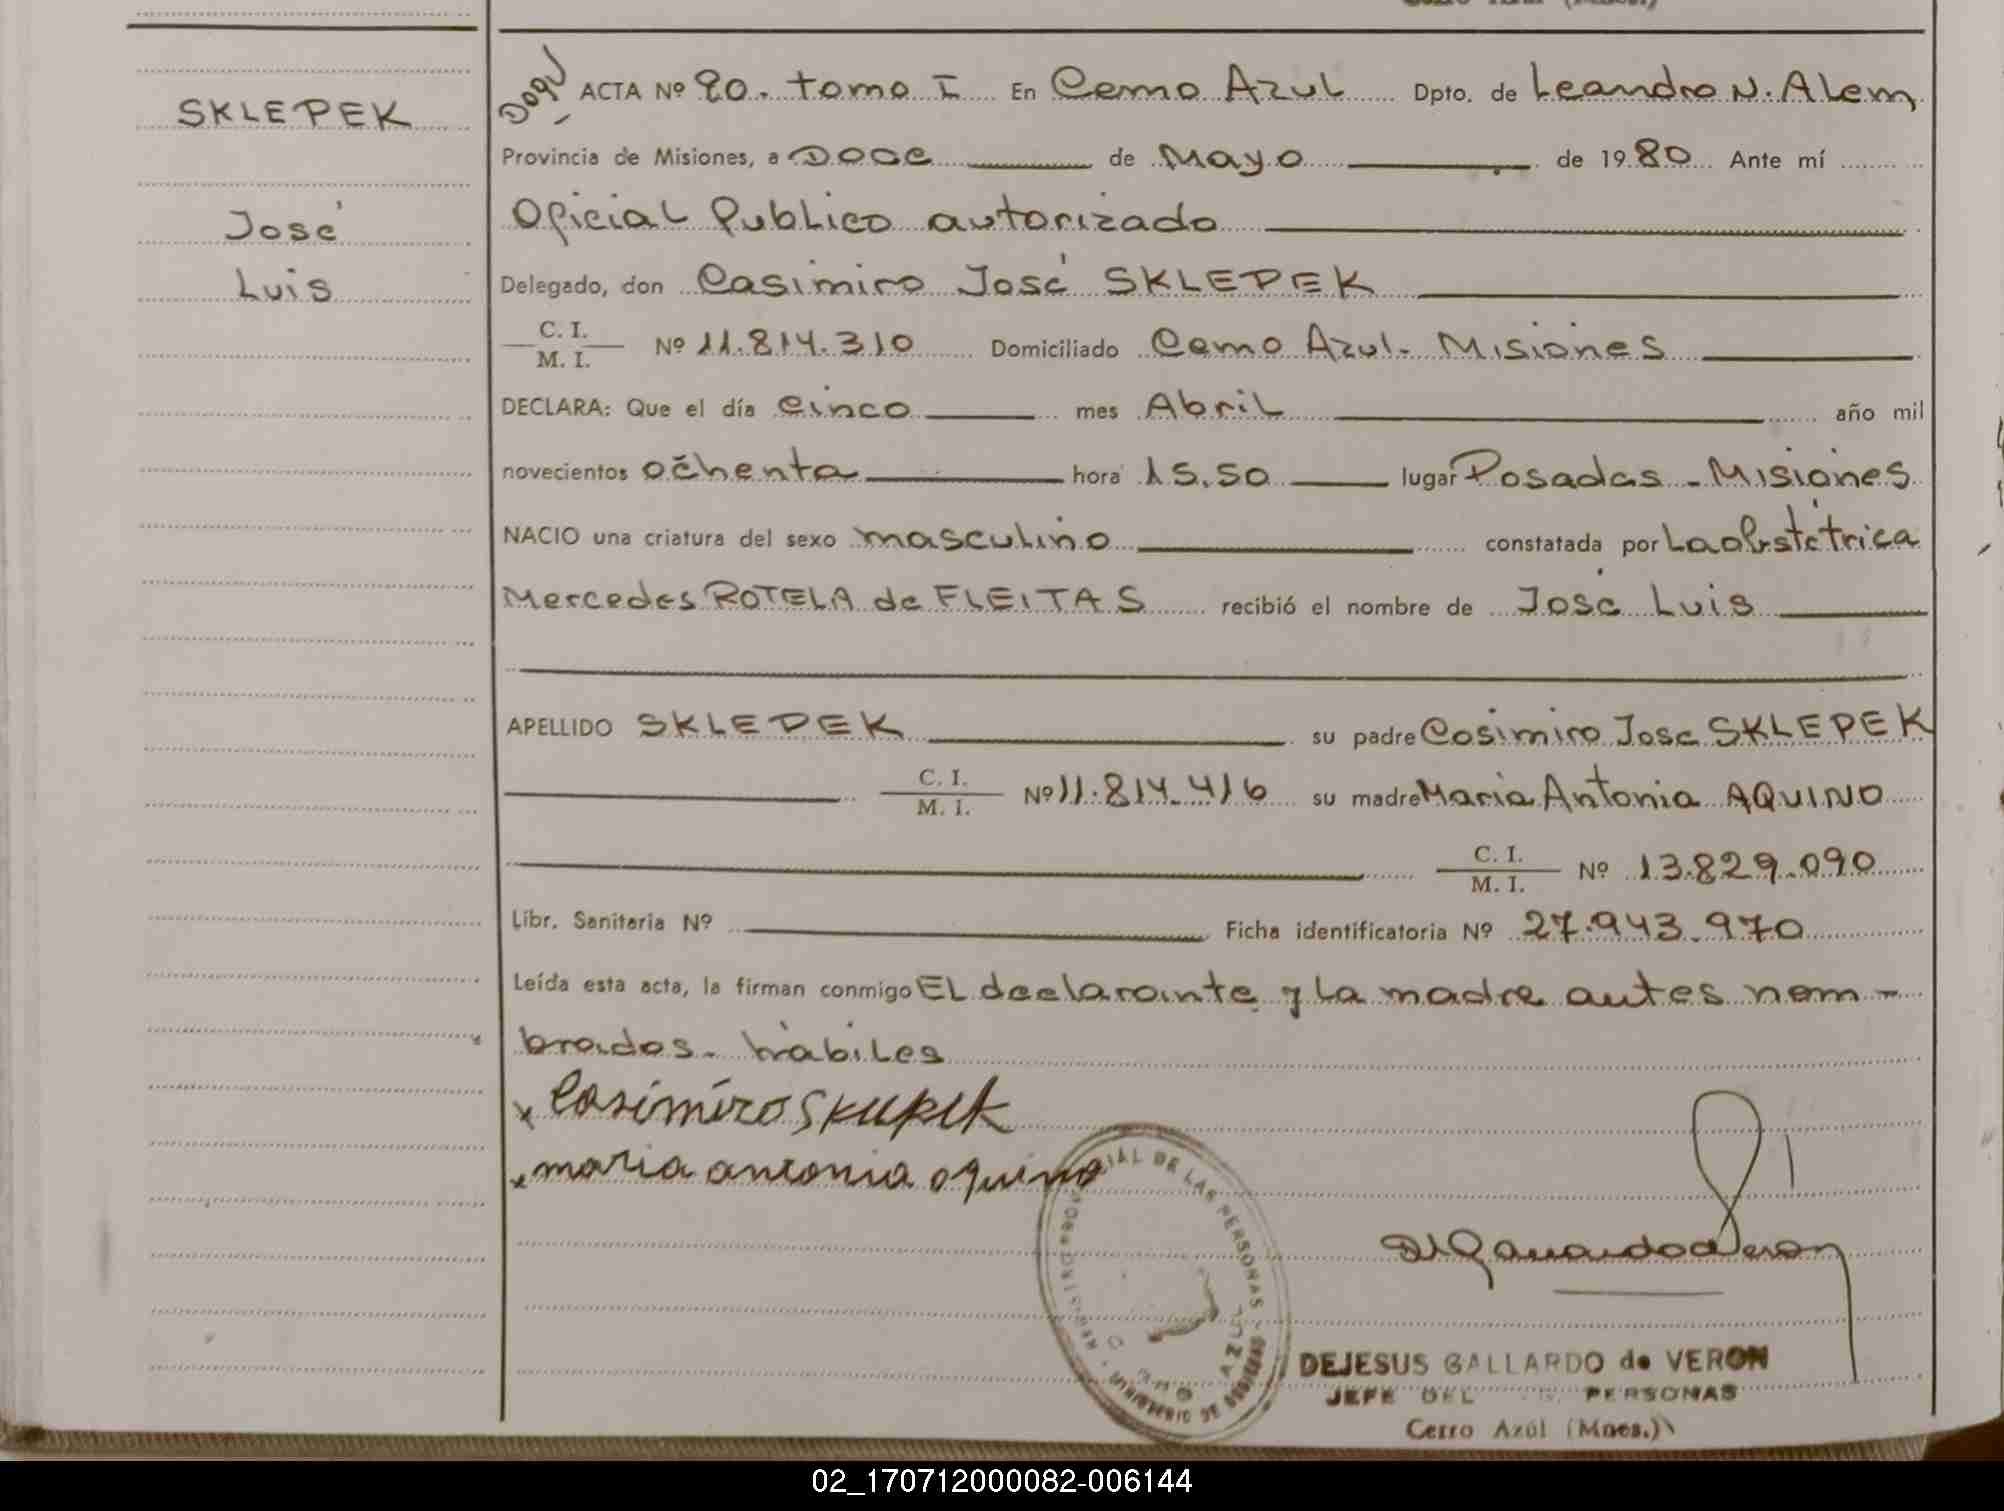 SKLEPEK
José
Luis
ACTA Nº 90. tomo I En Cerro Azul Dpto. de Leandro N. Alem
Provincia de Misiones, a Doce de Mayo de 1980 Ante mí
Oficial Publico autorizado
Delegado, don Casimiro José SKLEPEK
C. I.
M. I.
Nº 11.814.310 Domiciliado Cerro Azul. Misiones
DECLARA: Que el día cinco mes Abril año mil
novecientos ochenta hora 15.50 lugar Posadas - Misiones
NACIO una criatura del sexo masculino constatada por La obstétrica
Mercedes ROTELA de FLEITAS recibió el nombre de José Luis
APELLIDO SKLEPEK su padre Casimiro José SKLEPEK
C. I.
M. I.
Nº 11.814.416 su madre Maria Antonia AQUINO
C. I.
M. I.
Nº 13.829.090
Libr. Sanitaria Nº Ficha identificatoria Nº 27.943.970
Leída esta acta, la firman conmigo EL declarante y La madre antes nom-
brados. hábiles
x Casimiro Sklepek
x maria antonia aquino
REGISTRO PROVINCIAL DE LAS PERSONAS
DEJESUS GALLARDO de VERON
JEFE DEL PERSONAS
Cerro Azúl (Mnes.)
02_170712000082-006144